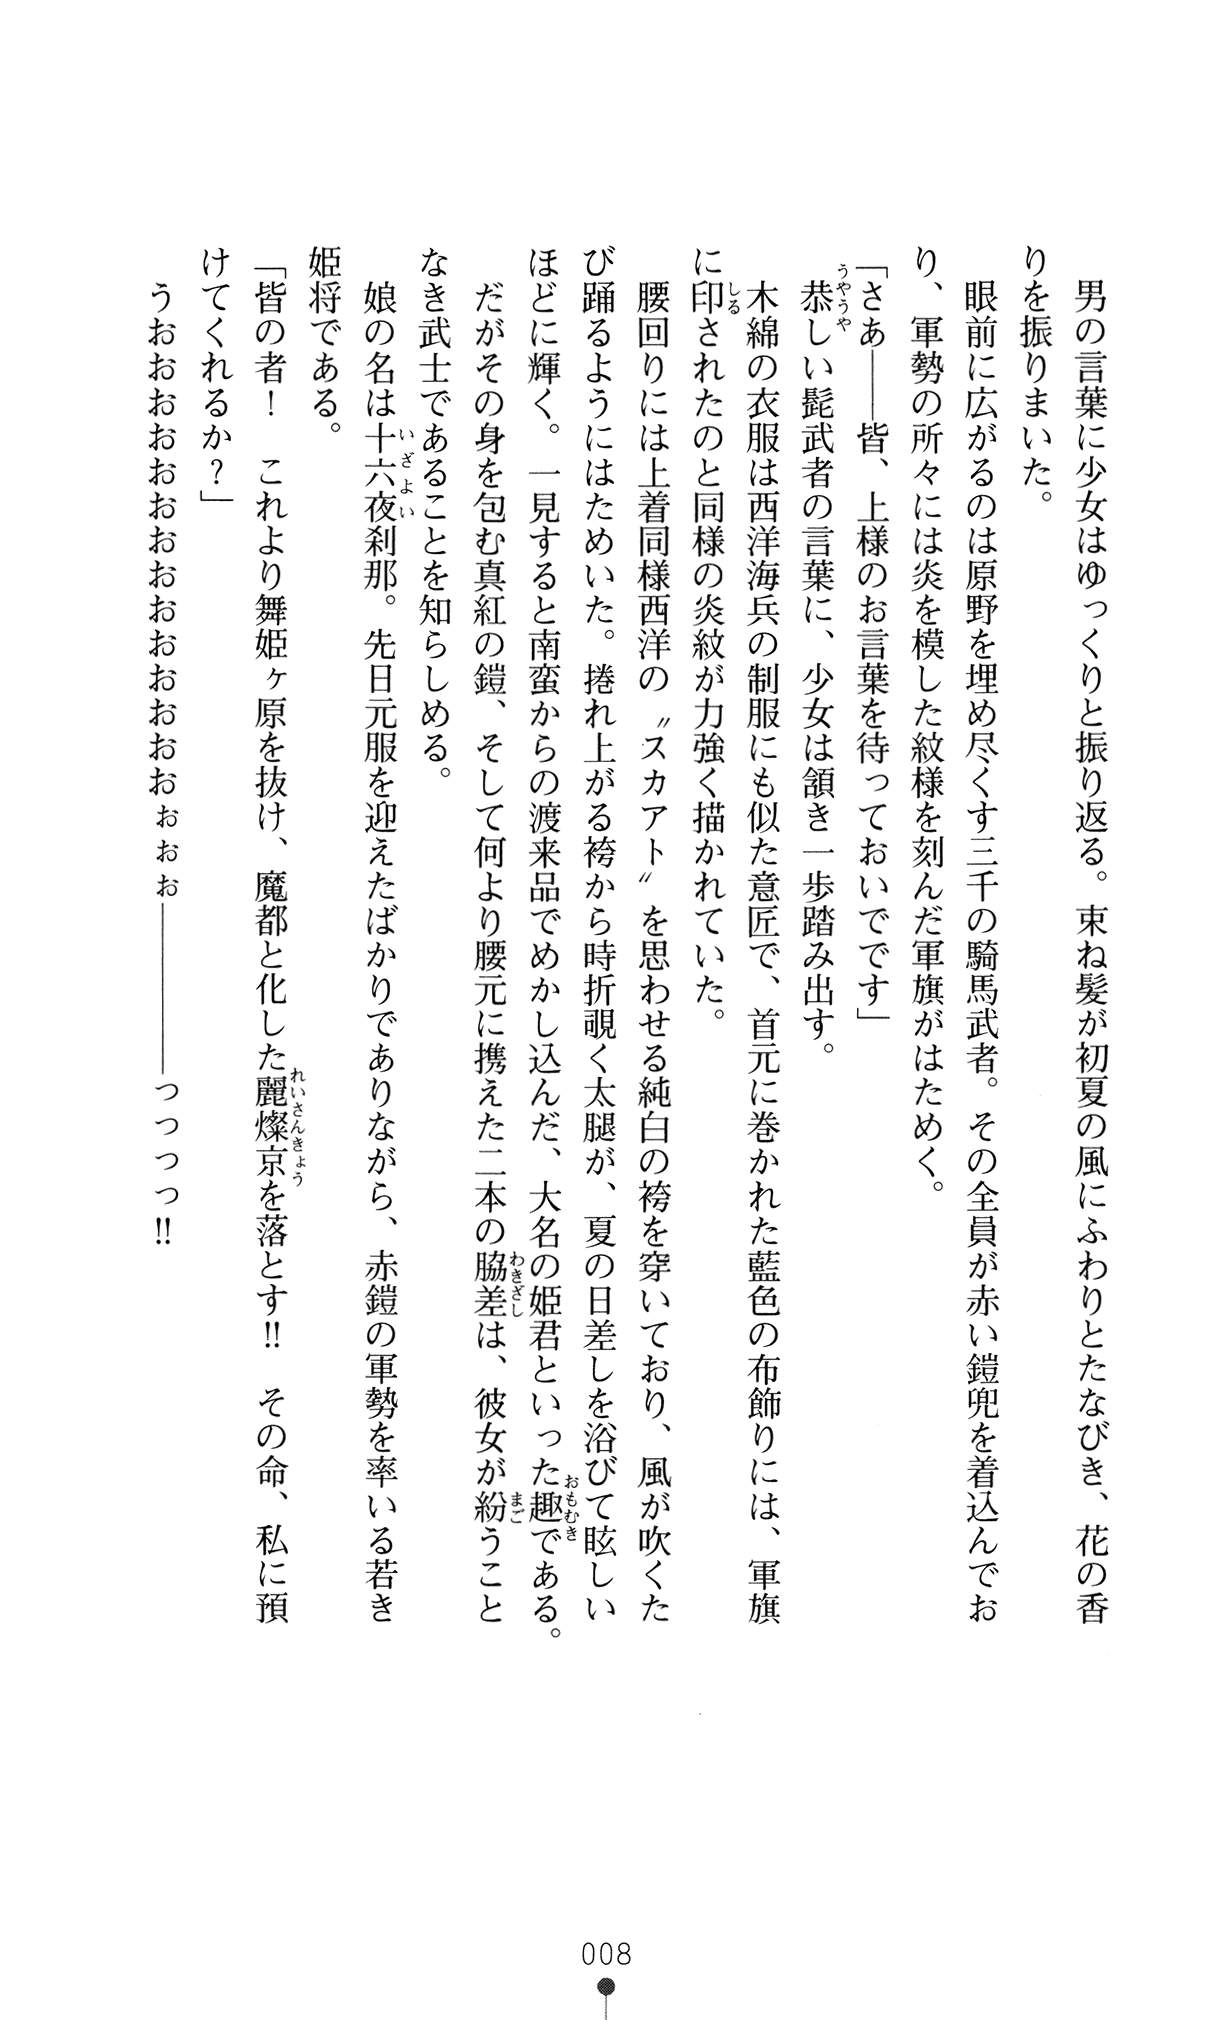 男の言葉に少女はゆっくりと振り返る。束ね髪が初夏の風にふわりとたなびき、花の香
りを振りまいた。
　眼前に広がるのは原野を埋め尽くす三千の騎馬武者。その全員が赤い鎧兜を着込んでお
り、軍勢の所々には炎を模した紋様を刻んだ軍旗がはためく。
「さあ――皆、上様のお言葉を待っておいでです」
　恭しい髭武者の言葉に、少女は頷き一歩踏み出す。
　木綿の衣服は西洋海兵の制服にも似た意匠で、首元に巻かれた藍色の布飾りには、軍旗
に印されたのと同様の炎紋が力強く描かれていた。
　腰回りには上着同様西洋の〝スカアト〟を思わせる純白の袴を穿いており、風が吹くた
び踊るようにはためいた。捲れ上がる袴から時折覗く太腿が、夏の日差しを浴びて眩しい
ほどに輝く。一見すると南蛮からの渡来品でめかし込んだ、大名の姫君といった趣である。
　だがその身を包む真紅の鎧、そして何より腰元に携えた二本の脇差は、彼女が紛うこと
なき武士であることを知らしめる。
　娘の名は十六夜刹那。先日元服を迎えたばかりでありながら、赤鎧の軍勢を率いる若き
姫将である。
「皆の者！　これより舞姫ヶ原を抜け、魔都と化した麗燦京を落とす!!　その命、私に預
けてくれるか？」
　うおおおおおおおおおおおおおおぉぉぉ―――――っっっっ!!
008